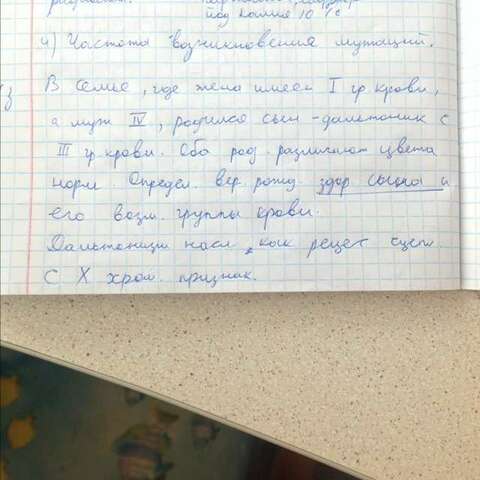 под номиа 10
4) Частота возникновения мутаций.
В семье, где жена имеет I гр. крови,
а муж IV, родился сын - дальтоник с
III гр. крови. Оба род. различают цвета
норм. Определ. вер. рожд здор сына и
его возм. группы крови.
Дальтонизм насл, как рецес сцеп.
С X хром. признак.